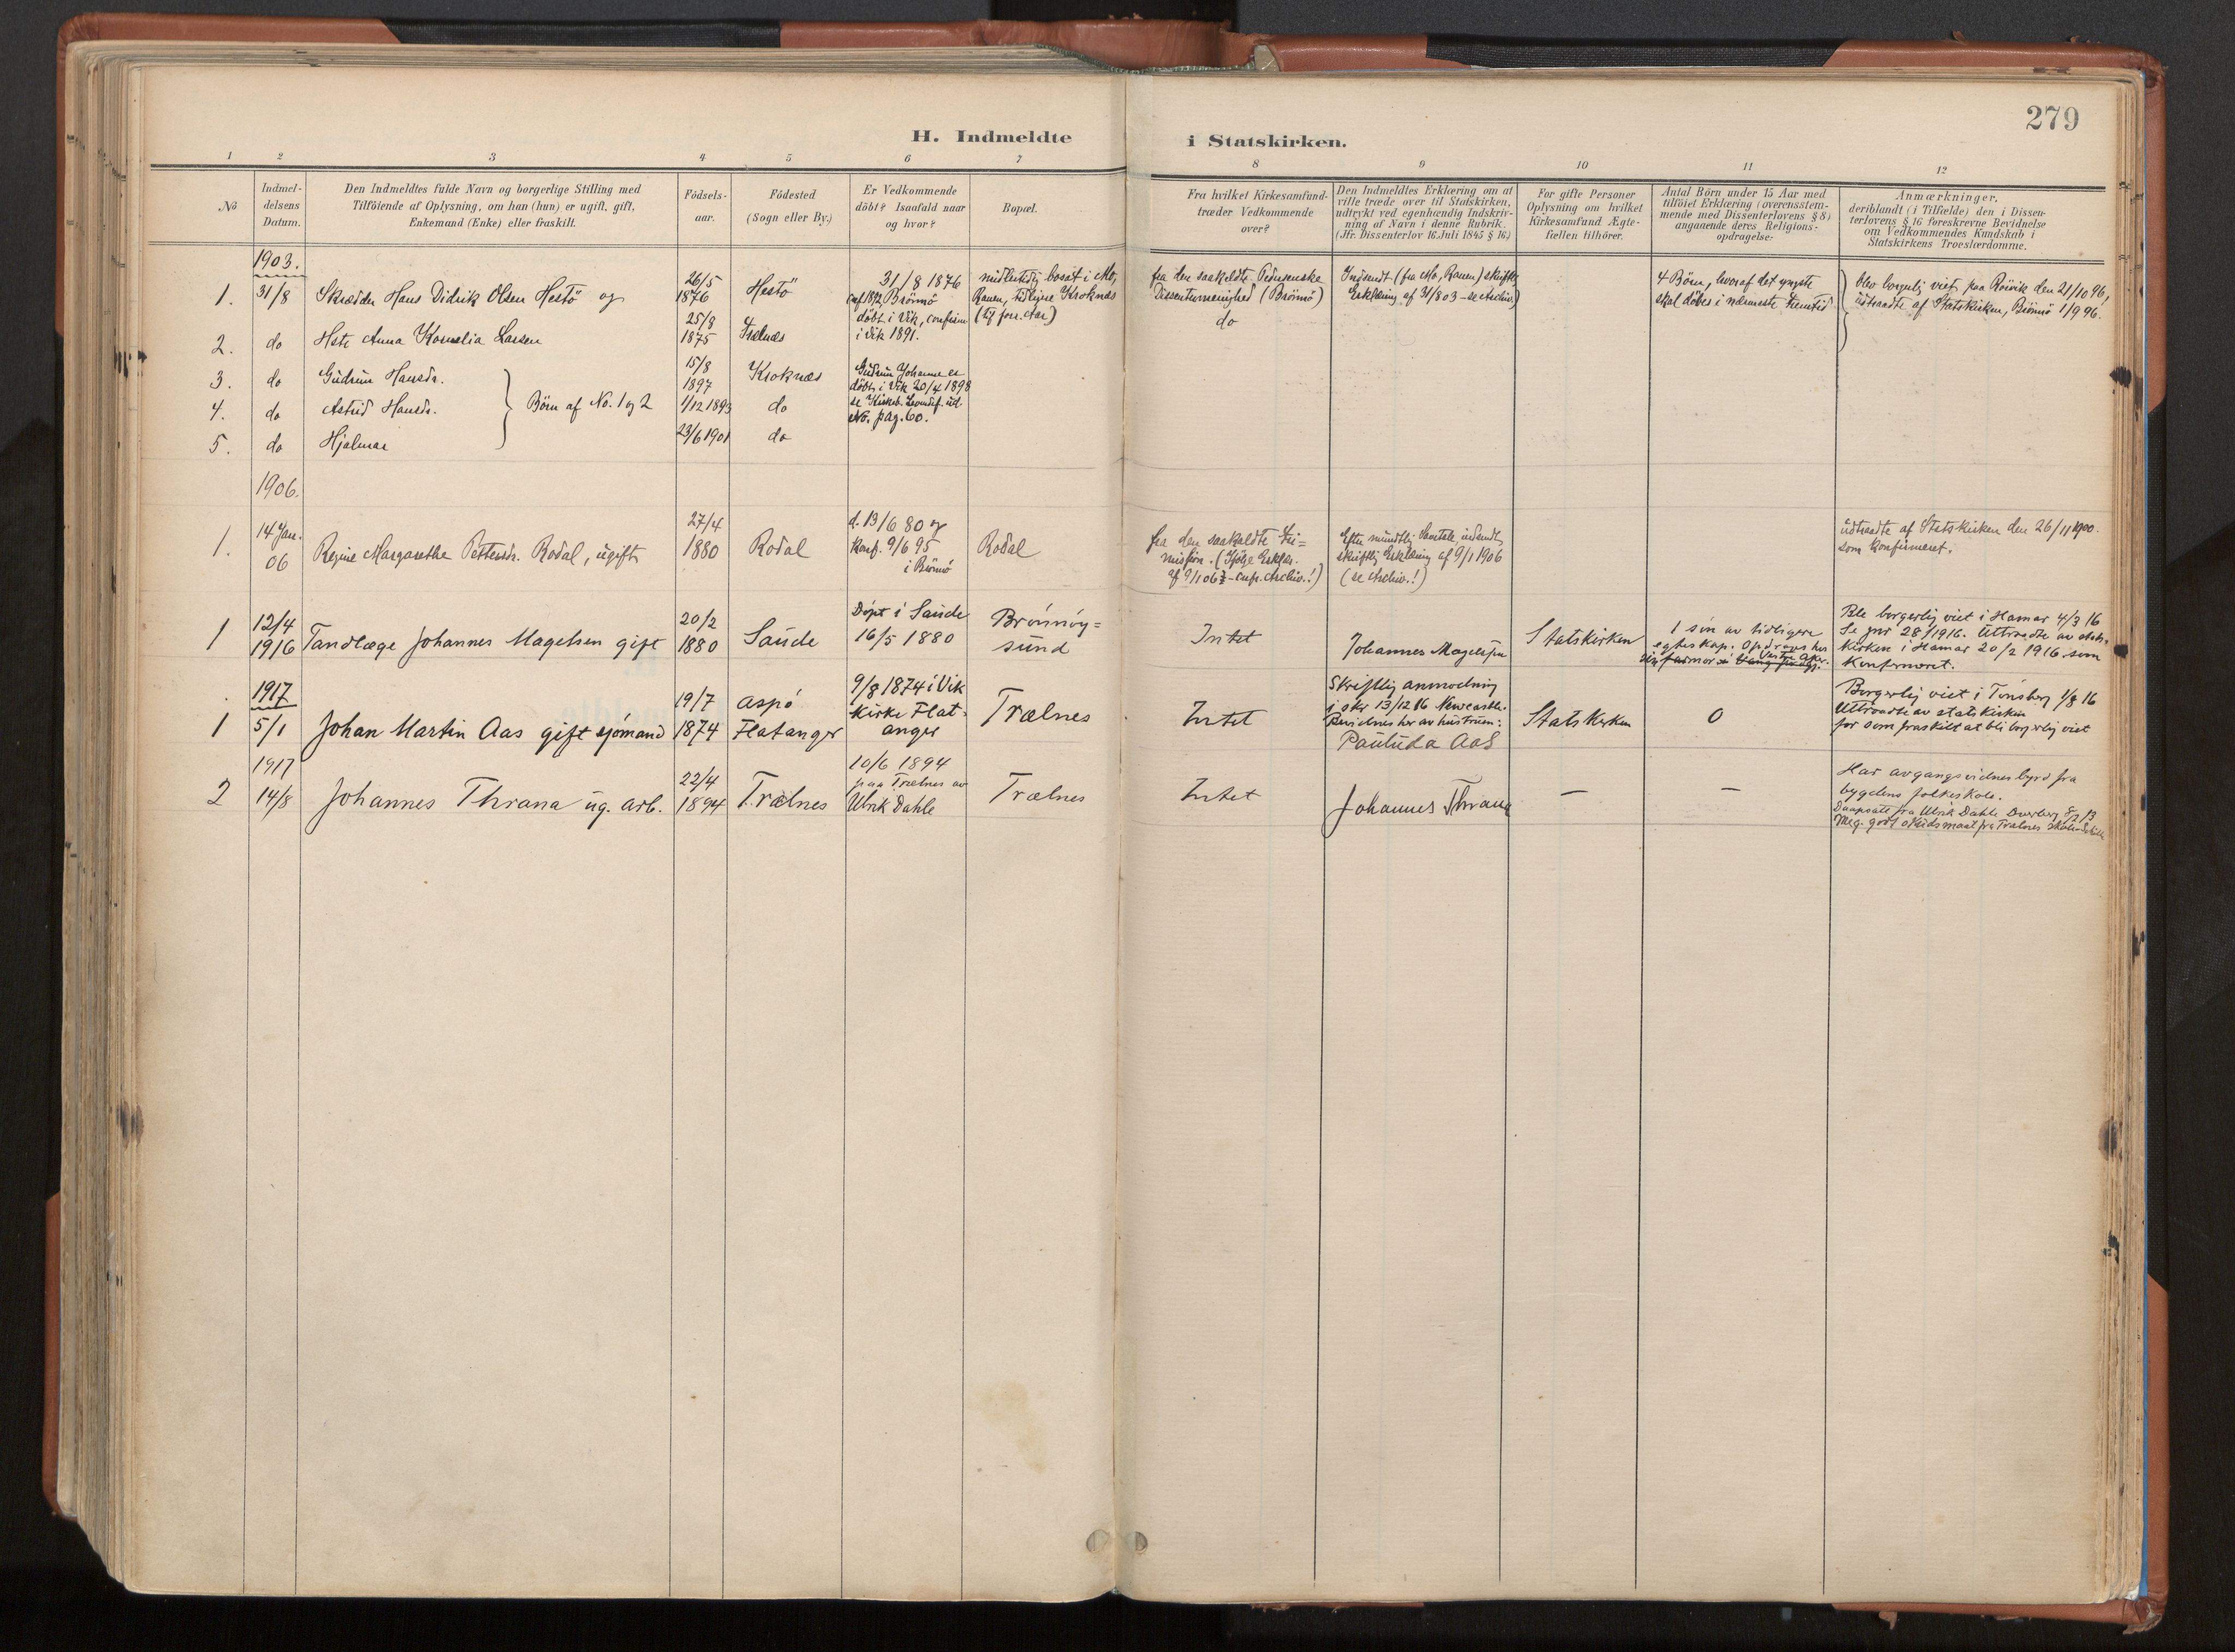 279
H. Indmeldte i Statskirken.
1 2 3 4 5 6 7 8 9 10 11 12
No
Indmel-
delsens
Datum.
Den Indmeldtes fulde Navn og borgerlige Stilling med
Tilföiende af Oplysning, om han (hun) er ugift, gift,
Enkemand (Enke) eller fraskilt.
Födsels-
aar.
Födested
(Sogn eller By.)
Er Vedkommende
döbt? Isaafald naar
og hvor?
Bopæl.
Fra hvilket Kirkesamfund
træder Vedkommende
over?
Den Indmeldtes Erklæring om at
ville træde over til Statskirken,
udtrykt ved egenhændig Indskriv-
ning af Navn i denne Rubrik.
(Jfr. Dissenterlov 16. Juli 1845 § 16.)
For gifte Personer
Oplysning om hvilket
Kirkesamfund Ægte-
fællen tilhörer.
Antal Börn under 15 Aar med
tilföiet Erklæring (overensstem-
mende med Dissenterlovens § 8)
angaaende deres Religions-
opdragelse.
Anmærkninger,
deriblandt (i Tilfælde) den i Dissen-
terlovens § 16 foreskrevne Bevidnelse
om Vedkommendes Kundskab i
Statskirkens Troeslærdomme.
1903.
1.
31/8
Skrædder Hans Didrik Olsen Hestö og
26/5
1876
Hestö
31/8 1876
conf. 1892 Brönnö
midlertidig bosat i Mo,
Ranen, tidligere Kroknæs
fra den saakaldte Pedersenske
Dissentermenighed (Brönnö)
Indsendt (fra Mo, Ranen) skriftlig
Erklæring af 31/8 03 - se Archiv.)
4 Börn, hvoraf det yngste
skal döbes i nærmeste Fremtid
blev borgerlig viet paa Röivik den 21/10 96,
udtraadte af Statskirken, Brönnö 1/9 96.
2.
do
Hstr Anna Kornelia Larsen
25/8
1875
Trælnæs
döbt i Vik, confirm
i Vik 1891.
do
3.
do
Gudrun Hansdr.
15/8
1897
Kroknæs
Gudrun Johanne er
döbt i Vik 20/4 1898
pag. 60.
4.
do
Astrid Hansdr.
Börn af No. 1 og 2
1/12 1893
do
5.
do
Hjalmar
23/6 1901
do
1906.
1.
14 Jan.
06
Regine Margarethe Pettersdr. Rodal, ugift
27/4
1880
Rodal
d. 13/6 80 og
Konf. 9/6 95
i Brönnö
Rodal
fra den saakaldte Fri=
misjion. (Ifölge Erklær.
af 9/1 06 - cnfr. Archiv.!)
Efter mundtlig Samtale indsendt
skriftlig Erklæring af 9/1 1906
(se Archiv.!)
udtraadte af Statskirken den 26/11 1900.
som Konfirmeret.
1
12/4
1916
Tandlæge Johannes Magelsen gift
20/2
1880
Saude
Döpt i Saude
16/5 1880
Brönnöy=
sund
Intet
Johannes Magelssen
Statskirken
1 sön av tidligere
egteskap. Opdrages hos
sin farmor i Vestre Aker.
Ble borgerlig viet i Hamar 4/3 16
Se jnr 28/1916. Uttraadte av stats-
kirken i Hamar 20/2 1916 som
konfirmeret.
1917
1
5/1
Johan Martin Aas gift sjömand
19/7
1874
Aspö
Flatanger
9/8 1874 i Vik
Kirke Flat-
anger
Trælnes
Intet
Skriftlig anmodning
i skr 13/12 16 Newcastle.
Bevidnes her av hustruen:
Paulula Aas
Statskirken
0
Borgerlig viet i Tönsberg 1/8 16
Uttraadte av statskirken
for som fraskilt at bli borgerlig viet
1917
2
14/8
Johannes Thrana ug. arb.
22/4
1894
Trælnes
10/6 1894
paa Trælnes av
Ulrik Dahle
Trælnes
Intet
Johannes Thrana
—
—
Har avgangsvidnesbyrd fra
bygdens folkeskole.
Daapsatt. fra Ulrik Dahle Dverberg 8/2 13
Meg. godt skudsmaal fra Trælnes